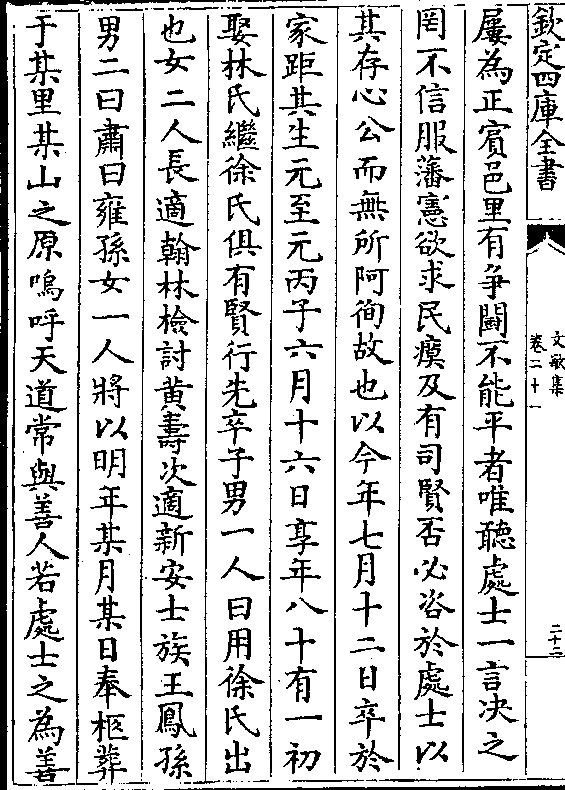 欽定四庫全書
文敏集
卷二十一
二十二
屢為正賓邑里有争鬭不能平者唯聽處士一言决之
罔不信服藩憲欲求民瘼及有司賢否必咨於處士以
其存心公而無所阿徇故也以今年七月十二日卒於
家距其生元至元丙子六月十六日享年八十有一初
娶林氏繼徐氏俱有賢行先卒子男一人曰用徐氏出
也女二人長適翰林檢討黄壽次適新安士族王鳳孫
男二曰肅曰雍孫女一人將以明年某月某日奉柩葬
于某里某山之原嗚呼天道常與善人若處士之為善